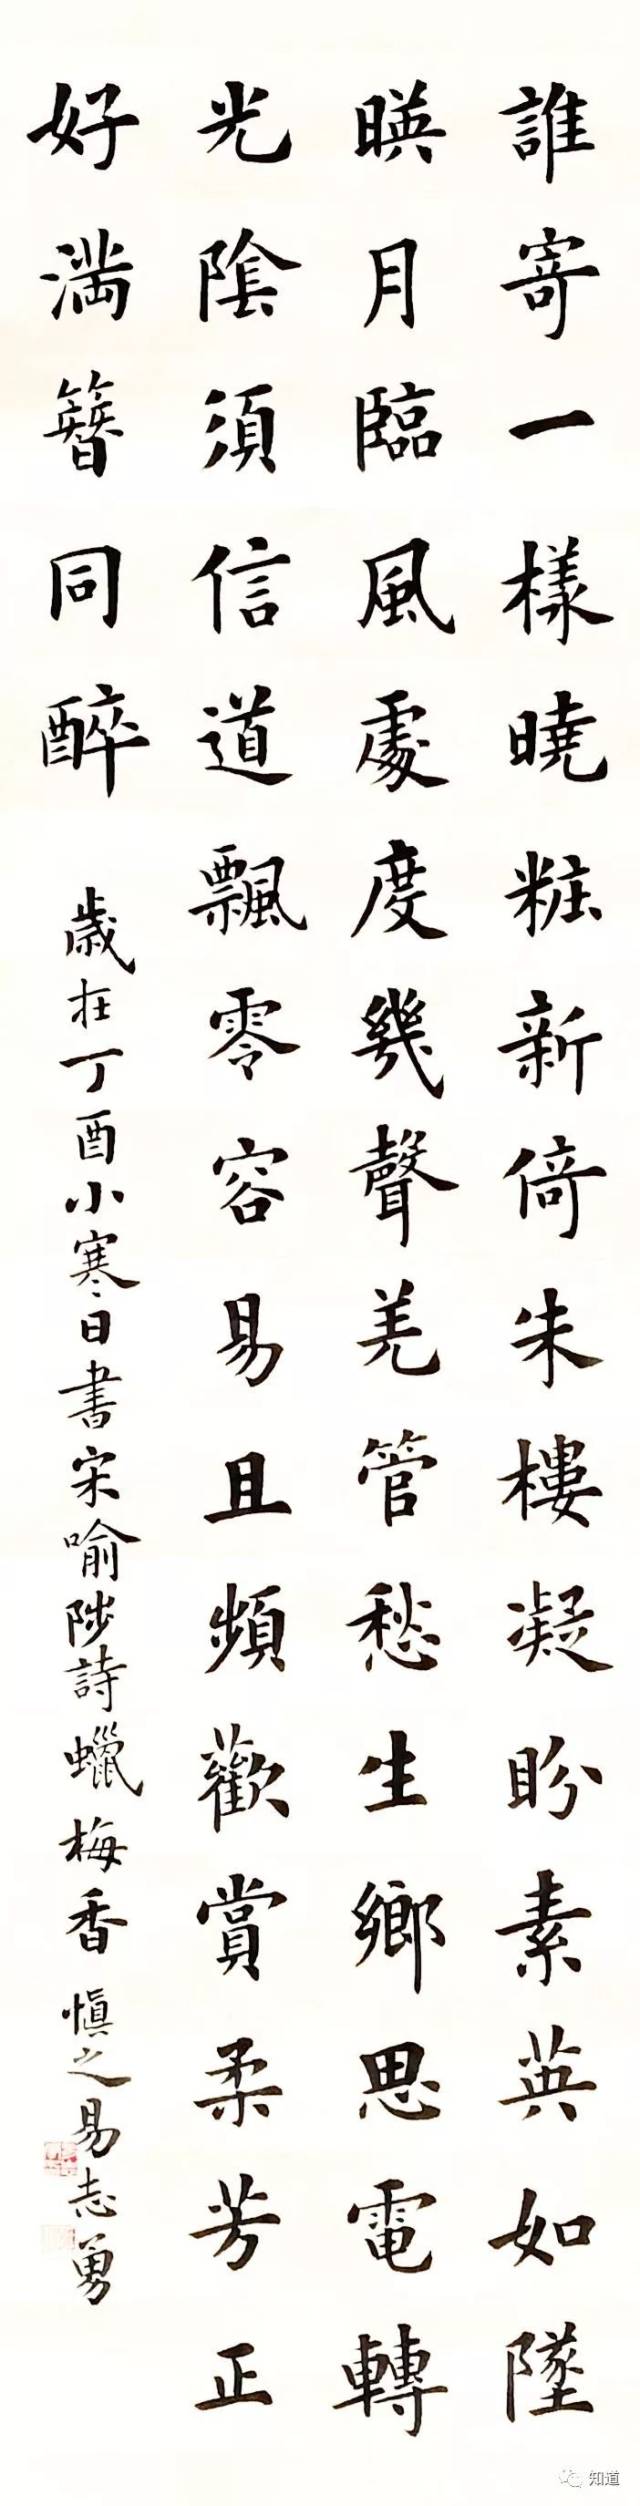 誰寄一樣曉粧新倚朱樓凝盼素英如墜
暎月臨風處度幾聲羌管愁生鄉思電轉
光陰須信道飄零容易且頻歡賞柔芳正
好滿簪同醉
歲在丁酉小寒日書宋喻陟詩蠟梅香 慎之易志勇
知道